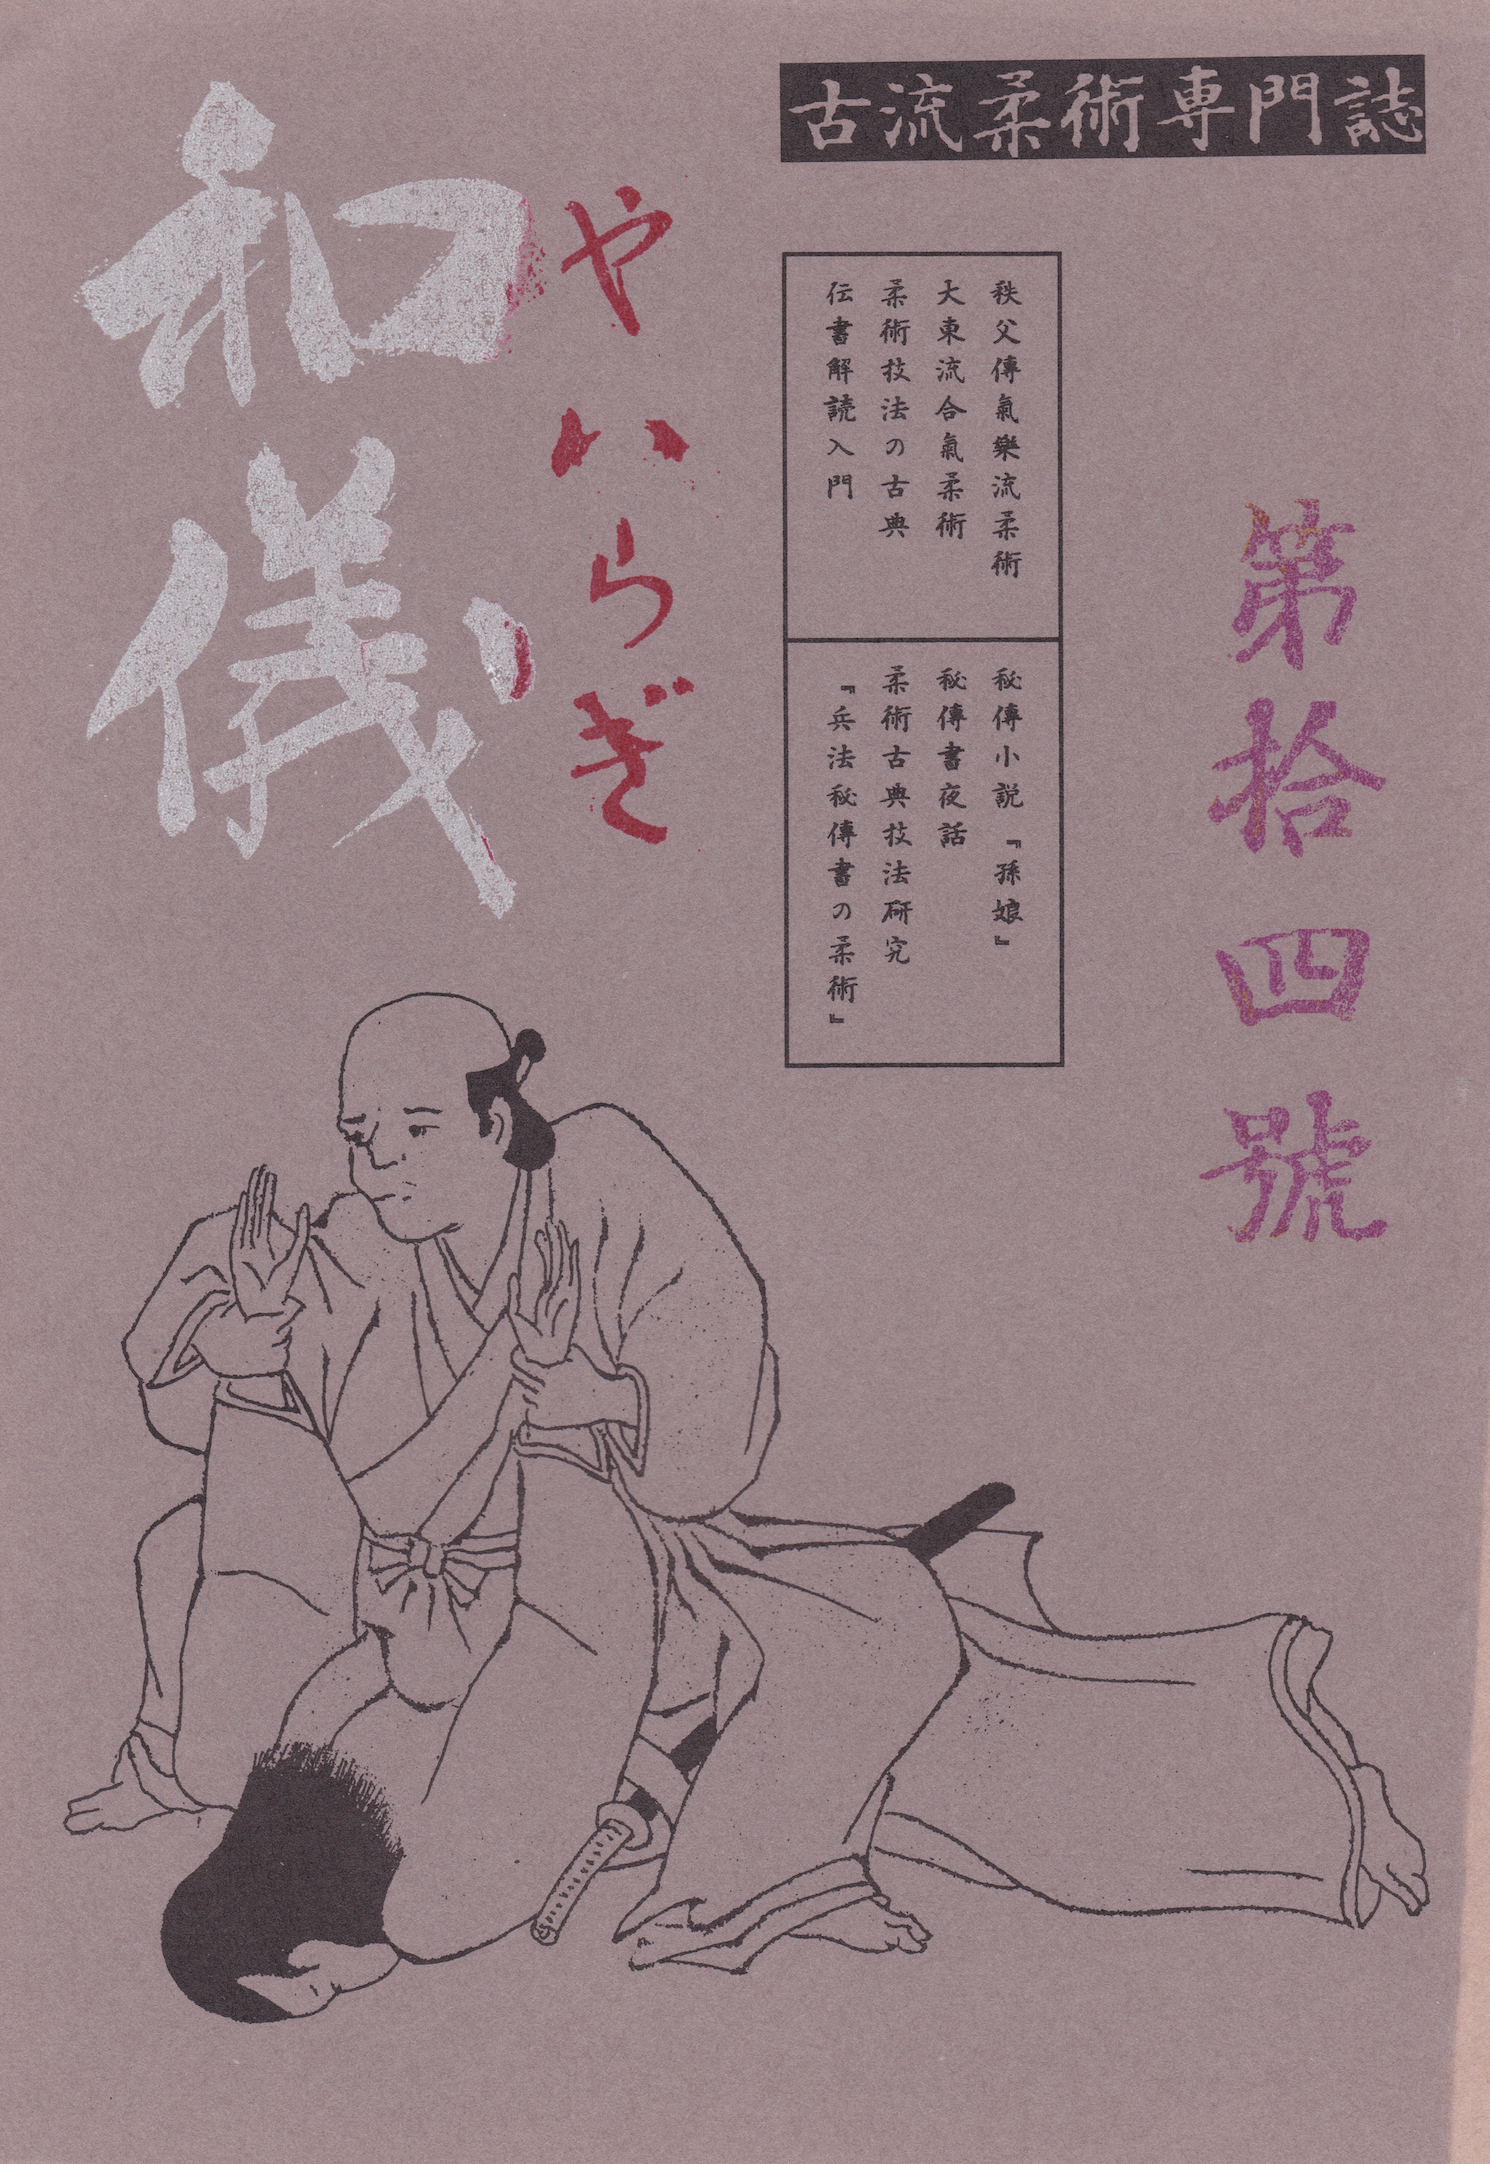 古流柔術専門誌
和儀
やハらぎ
第拾四號
秩父傳氣樂流柔術
大東流合氣柔術
柔術技法の古典
伝書解読入門
秘傳小説『孫娘』
秘傳書夜話
柔術古典技法研究
『兵法秘傳書の柔術』